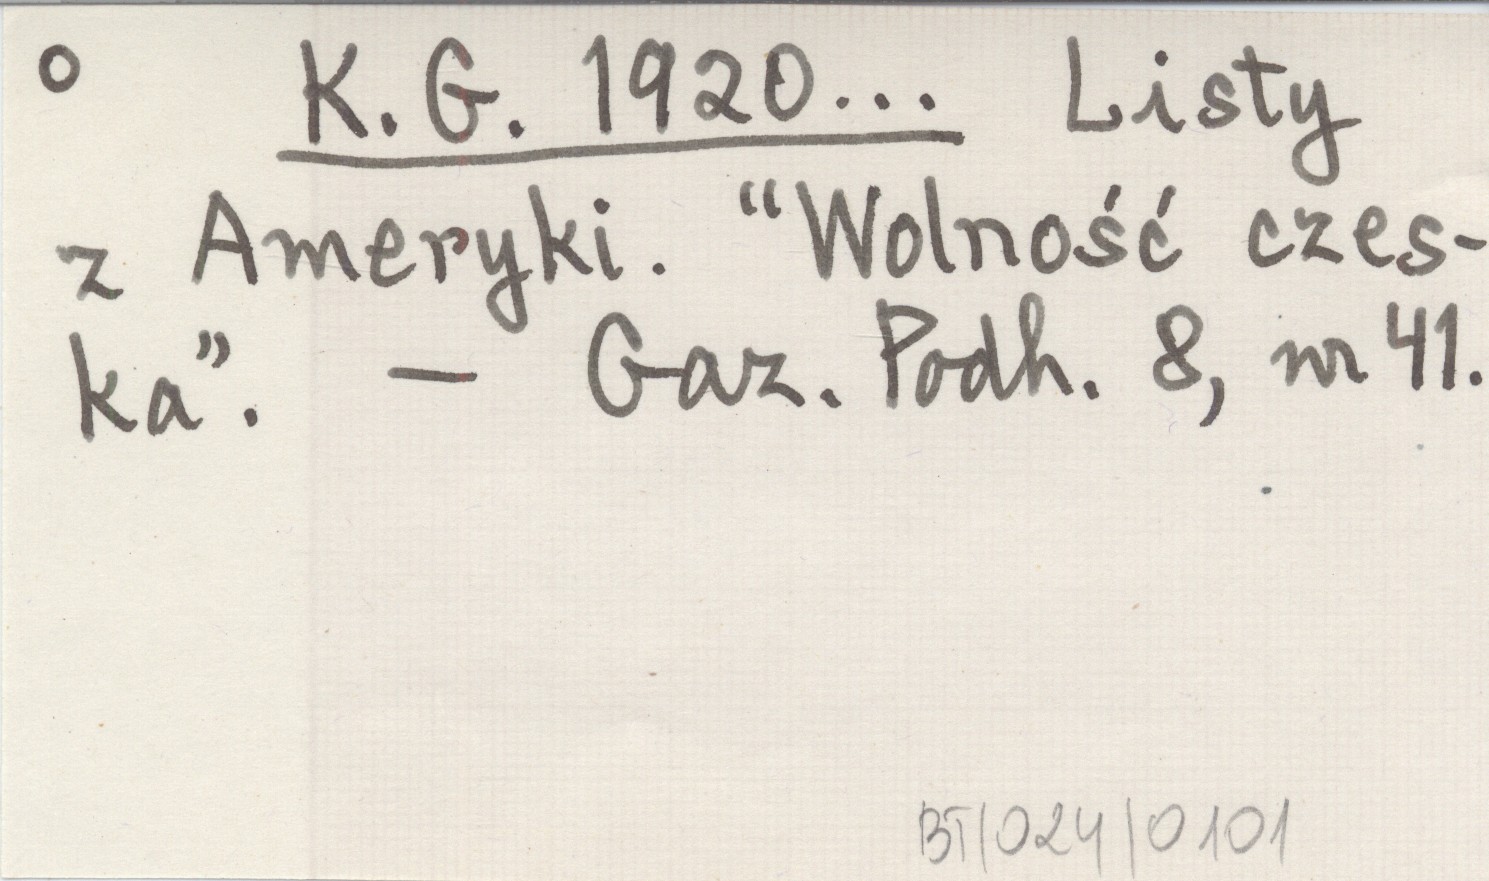 o K. G. 1920... Listy
z Ameryki. “Wolność czes-
ka”. — Gaz. Podh. 8, nr 41.
BT/024/0101